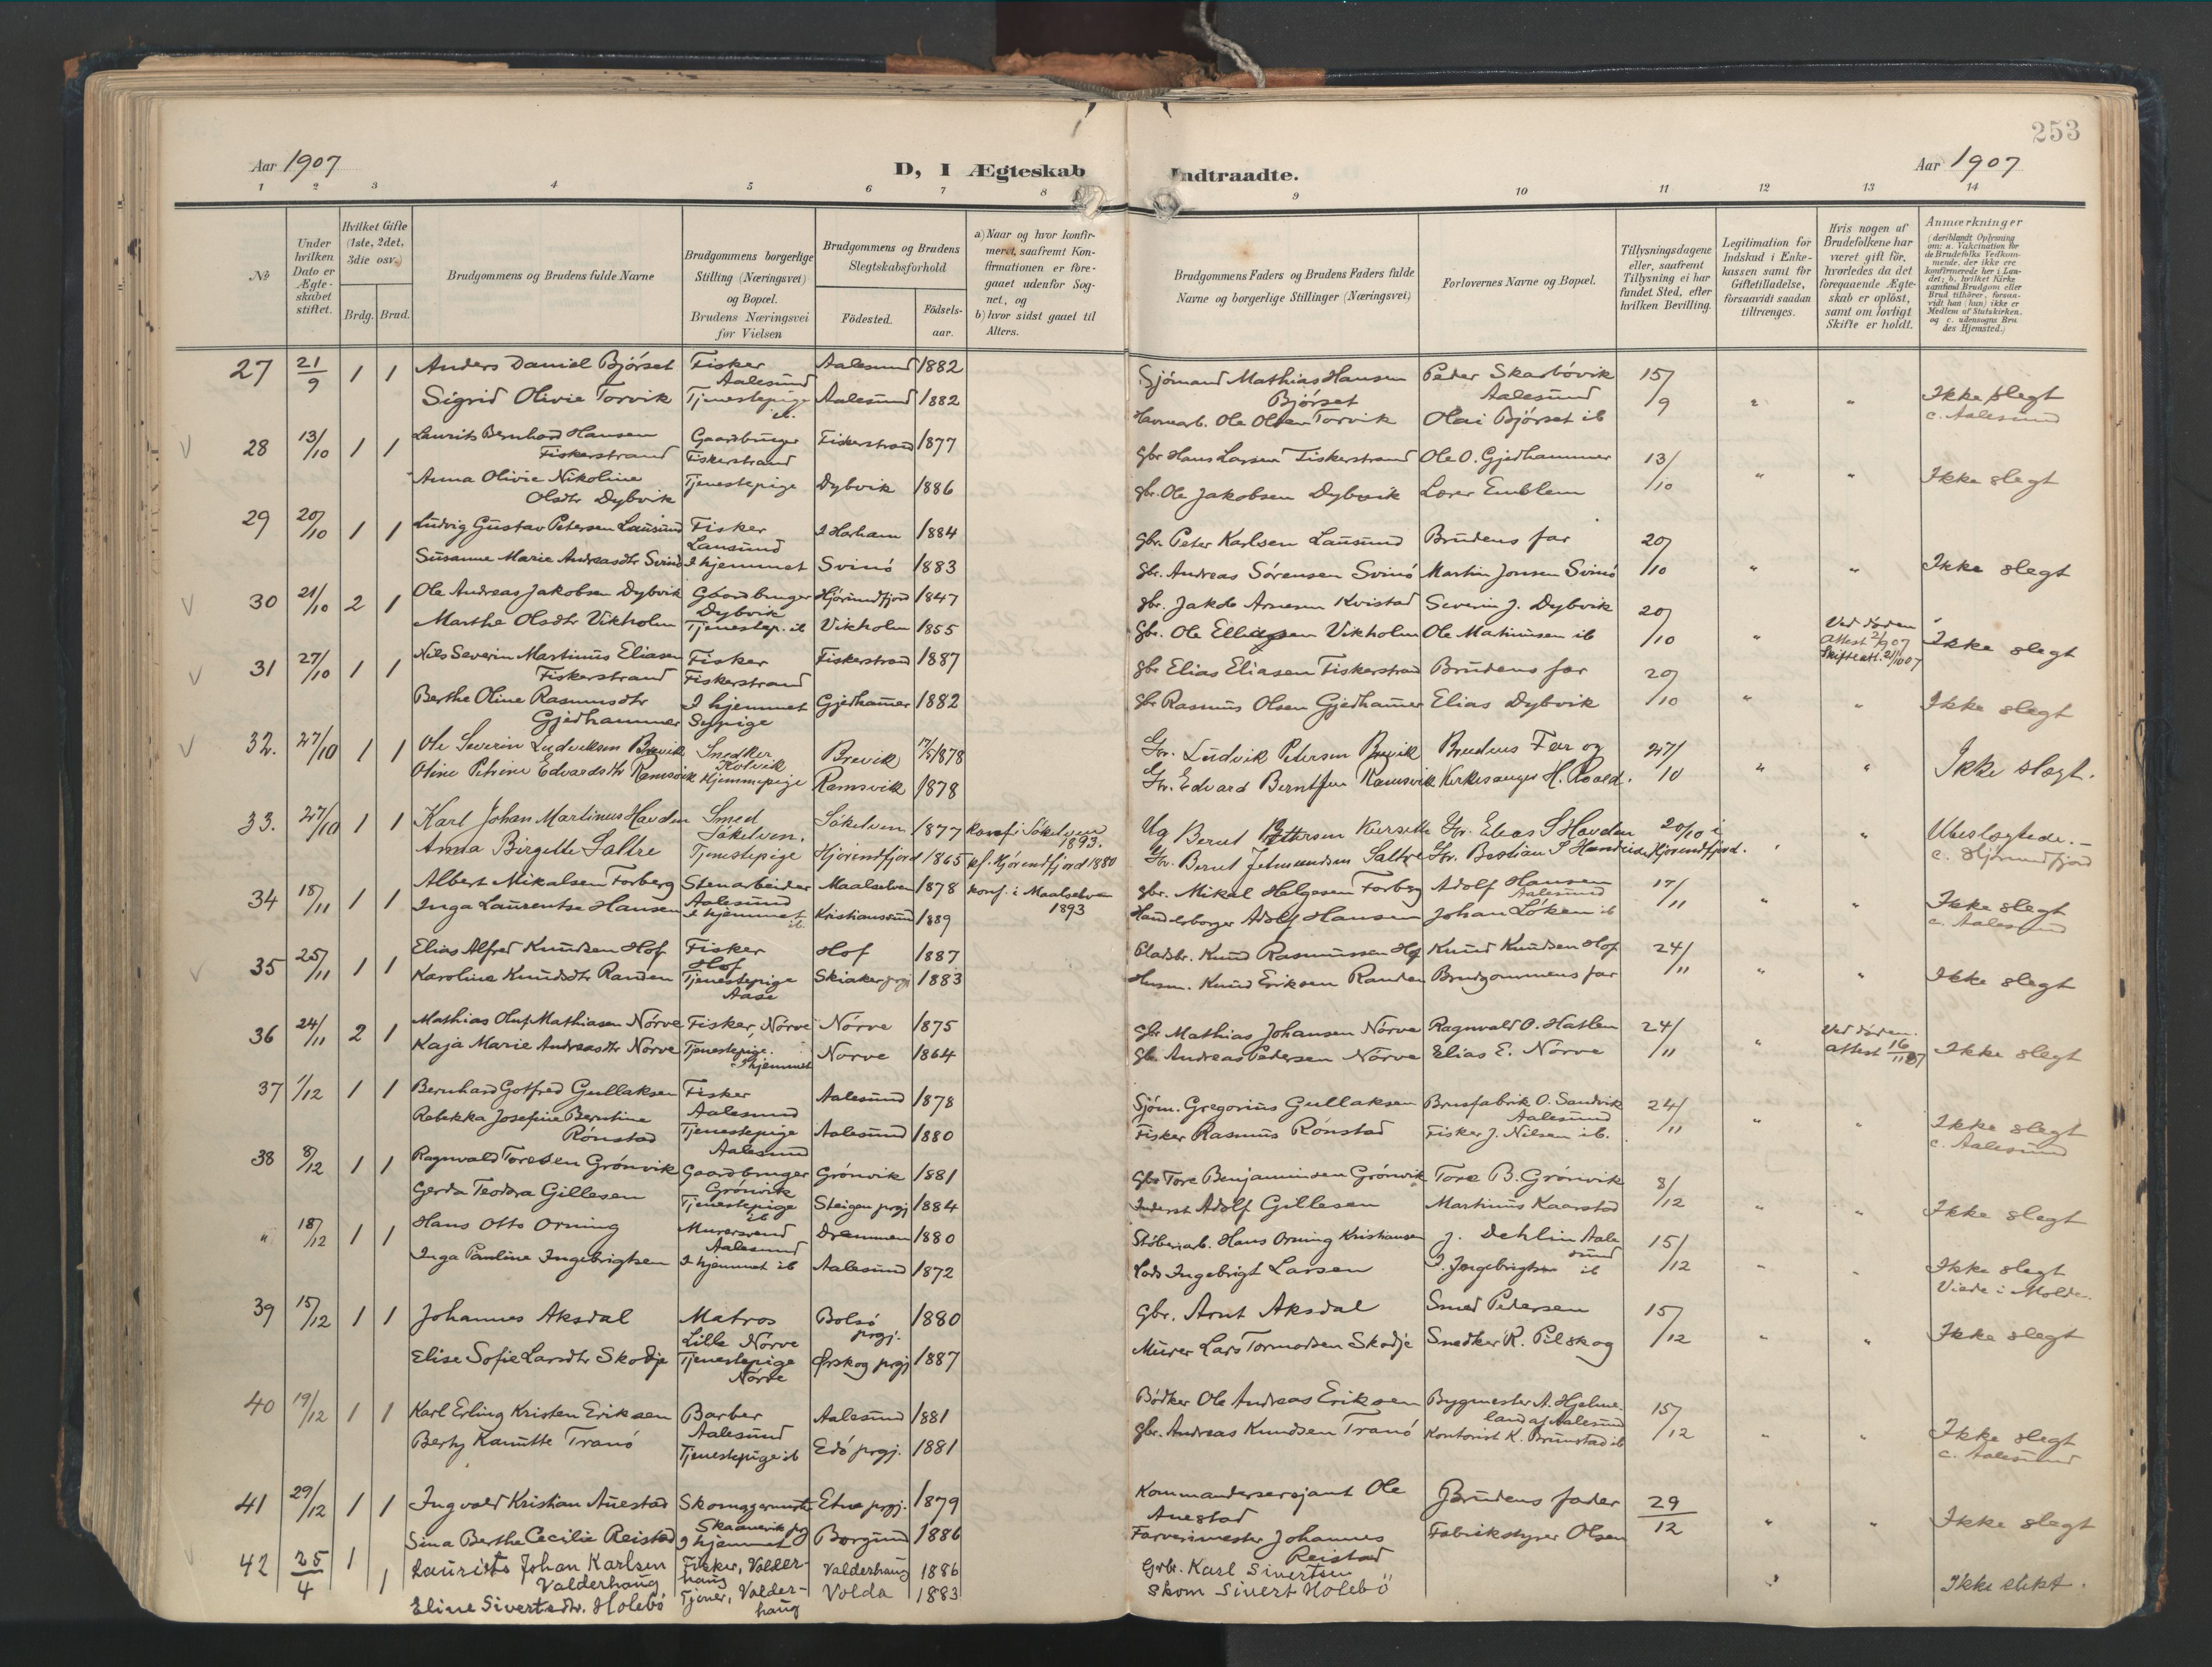 253
Aar 1907
D, I Ægteskab Indtraadte.
Aar 1907
1 2 3 4 5 6 7 8 9 10 11 12 13 14
№
Under hvilken Dato er Ægteskabet stiftet.
Hvilket Gifte (1ste, 2det, 3die osv.)
Brdg. Brud.
Brudgommens og Brudens fulde Navne
Brudgommens borgerlige Stilling (Næringsvei) og Bopæl. Brudens Næringsvei før Vielsen
Brudgommens og Brudens Slegtskabsforhold
Fødested. Fødselsaar.
a) Naar og hvor konfirmeret, saafremt Konfirmationen er foregaaet udenfor Sognet, og
b) hvor sidst gaaet til Alters.
Brudgommens Faders og Brudens Faders fulde Navne og borgerlige Stillinger (Næringsvei)
Forlovernes Navne og Bopæl.
Tillysningsdagene eller, saafremt Tillysning ei har fundet Sted, efter hvilken Bevilling.
Legitimation for Indskud i Enkekassen samt for Giftetilladelse, forsaavidt saadan tiltrænges.
Hvis nogen af Brudefolkene har været gift før, hvorledes da det foregaaende Ægteskab er opløst, samt om lovligt Skifte er holdt.
Anmærkninger
(deriblandt Oplysning om: a. Vakcination for de Brudefolks Vedkommende, der ikke ere konfirmerede her i Landet; b. hvilket Kirkesamfund Brudgom eller Brud tilhører, forsaavidt han (hun) ikke er Medlem af Statskirken, og c. udensogns Brudes Hjemsted.)
27 21/9 1 1 Anders Daniel Bjørset Fisker Aalesund Aalesund 1882 Sjømand Mathias Hansen Bjørset Peder Skarbøvik Aalesund 15/9 " " Ikke slegt
Sigrid Olivie Torvik Tjenestepige ib. Aalesund 1882 Havnearb. Ole Olsen Torvik Olai Bjørset ib c. Aalesund
28 13/10 1 1 Laurits Bernhard Hansen Fiskerstrand Gaardbruger Fiskerstrand Fiskerstrand 1877 gbr Hans Larsen Fiskerstrand Ole O. Gjedhammer 13/10 " " Ikke slegt
Anna Olivie Nikoline Olsdtr Dybvik Tjenestepige Dybvik 1886 gbr. Ole Jakobsen Dybvik Lærer Emblem
29 20/10 1 1 Ludvig Gustav Petersen Lausund Fisker Lausund I Harham 1884 gbr. Peter Karlsen Lausund Brudens far 20/10 " " Ikke slegt
Susanne Marie Andreasdtr Svinø I hjemmet Svinø 1883 gbr. Andreas Sørensen Svinø Martin Jonsen Svinø
30 21/10 2 1 Ole Andreas Jakobsen Dybvik Gaardbruger Dybvik Hjørundfjord 1847 gbr. Jakob Arnesen Kvistad Severin J. Dybvik 20/10 " Ved døden Attest 2/9 07 Skifteatt. 21/10 07 Ikke slegt
Marthe Olsdtr Vikholm Tjenestep. ib Vikholm 1855 gbr. Ole Elliasen Vikholm Ole Matiassen ib
31 27/10 1 1 Nils Severin Martinus Eliasen Fiskerstrand Fisker Fiskerstrand Fiskerstrand 1887 gbr Elias Eliasen Fiskerstrand Brudens far 20/10 " " Ikke slegt
Berthe Oline Rasmusdtr Gjedhammer I hjemmet Sypige Gjedhamer 1882 gbr Rasmus Olsen Gjedhamer Elias Dybvik
32. 27/10 1 1 Ole Severin Ludviksen Brevik Snedker Kolvik Brevik 17/5 1878 Gbr. Ludvik Petersen Brevik Brudens Far og 27/10 " " Ikke slegt.
Oline Petrine Edvardsdtr Ramsvik Hjemmepige Ramsvik 1878 Gbr. Edvard Berntsen Ramsvik Kirkesanger H. Roald.
33. 27/10 1 1 Karl Johan Martinus Havden Smed Søkelven. Søkelven 1877 konf. i Søkelven 1893. Ug Bernt Pettersen Kursæth Gbr. Elias S Havden 20/10 i Hjørendfjord. " Ubeslegtede.
Anna Birgette Sættre Tjenestepige Hjørendfjord 1865 kf. Hjørendfjord 1880 Gbr. Bernt Jetmundsen Sættre Gbr. Bastian S c. Hjørundfjord
34 18/11 1 1 Albert Mikalsen Forberg Stenarbeider Aalesund Maalselven 1878 konf. i Maalselven 1893 gbr. Mikal Helgesen Forberg Adolf Hansen Aalesund 17/11 " " Ikke slegt
Inga Laurentse Hansen I hjemmet ib. Kristiansund 1889 Handelsborger Adolf Hansen Johan Løken ib c. Aalesund
35 25/11 1 1 Elias Alfred Knudsen Hof Fisker Hof Hof 1887 Pladsbr. Knud Rasmussen Hof Knud Knudsen Hof 24/11 " " Ikke slegt
Karoline Knudsdtr Randen Tjenestepige Aase Skiaker prgj 1883 Husm. Knud Eriksen Randen Brudgommens far
36 24/11 2 1 Mathias Oluf Mathiasen Nørve Fisker, Nørve Nørve 1875 gbr Mathias Johansen Nørve Ragnvald O. Hatlen 24/11 " Ved døden. Attest 16/11 07 Ikke slegt
Kaja Marie Andreasdtr Nørve Tjenestepige. I hjemmet Nørve 1864 gbr Andreas Pedersen Nørve Elias E. Nørve
37 1/12 1 1 Bernhard Gotfred Gullaksen Fisker Aalesund Aalesund 1878 Sjøm. Gregorius Gullaksen Brusfabrik O. Sandvik Aalesund 24/11 " " Ikke slegt
Rebekka Josefine Berntine Rønstad Tjenestepige Aalesund Aalesund 1880 Fisker Rasmus Rønstad Fisker J. Nilsen ib. c. Aalesund
38 8/12 1 1 Ragnvald Toresen Grønvik Gaardbruger Grønvik Grønvik 1881 Gbr Tore Benjaminsen Grønvik Tore B. Grønvik 8/12 " " Ikke slegt
Gerda Teodora Gillesen Tjenestepige ib Steigen prgj 1884 Inderst Adolf Gillesen Martinus Kaarstad
" 18/12 1 1 Hans Otto Orning Murersvend Aalesund Drammen 1880 Støberiarb. Hans Orning Kristiansen J. Dehlin Aalesund 15/12 " " Ikke slegt
Inga Pauline Ingebrigtsen I hjemmet ib Aalesund 1872 Lods Ingebrigt Larsen I. Ingebrigtsen ib Viede i Molde.
39 15/12 1 1 Johannes Aksdal Matros Lille Nørve Bolsø prgj. 1880 Gbr. Arnt Aksdal Smed Pedersen 15/12 " " Ikke slegt
Elise Sofie Larsdtr Skodje Tjenestepige Nørve Ørskog prgj 1887 Murer Lars Tormodsen Skodje Snedker R. Pilskog
40 19/12 1 1 Karl Erling Kristen Eriksen Barber Aalesund Aalesund 1881 Bødker Ole Andreas Eriksen Bygmester A. Hjelmeland af Aalesund 15/12 " " Ikke slegt
Berty Kanutte Tranø Tjenestepige ib Edø prgj. 1881 gbr. Andreas Knudsen Tranø Kontorist K. Brunstad ib c. Aalesund
41 29/12 1 1 Ingvald Kristian Auestad Skomagermester Skaanevik prg Etne prgj. 1879 Kommandersersjant Ole Auestad Brudens fader 29/12 " " Ikke slegt
Sina Berthe Cecilie Reistad I hjemmet Borgund 1886 Farverimester Johannes Reistad Fabrikstyrer Olsen
42 25/4 1 1 Laurits Johan Karlsen Valderhaug Fisker, Valderhaug Valderhaug 1886 Grbr. Karl Sivertsen " Ikke slekt.
Eline Sivertsdtr. Holebø Tjener, Valderhaug Volda 1883 Skom Sivert Holebö